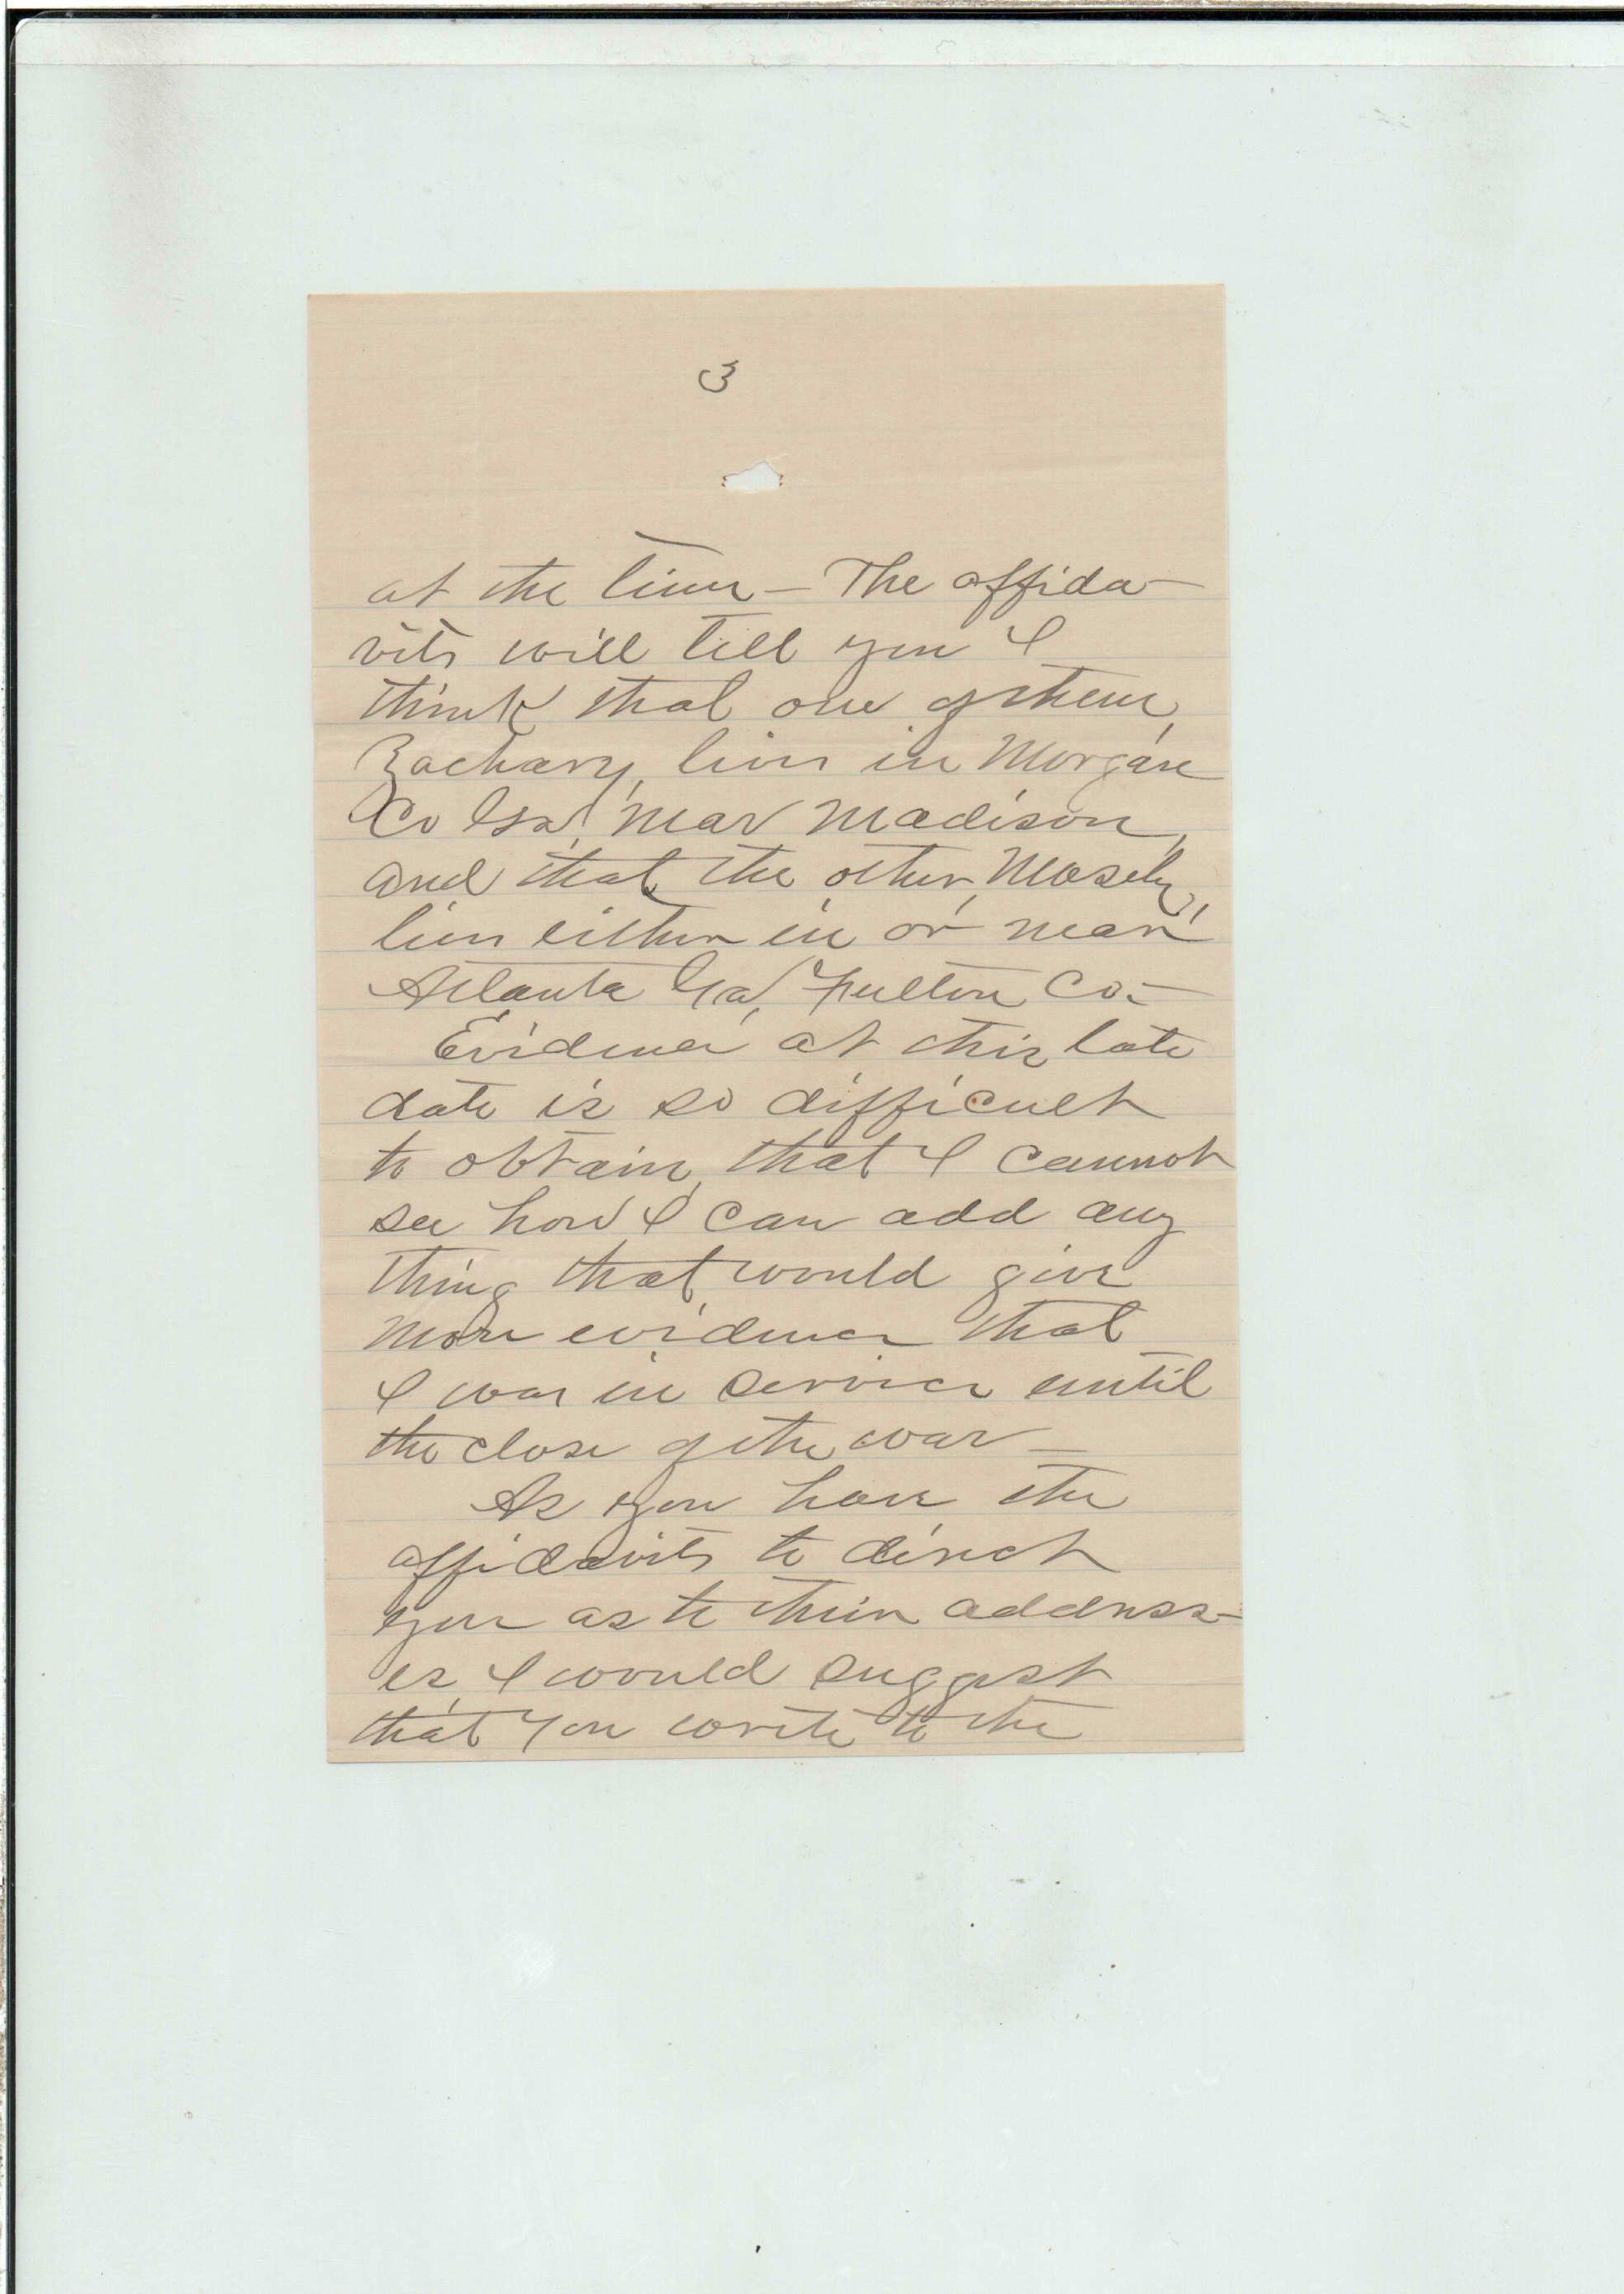 3
at the time – The affida-
vits will tell you I
think that one of them,
Zachary, lives in Morgan
Co Ga, near Madison,
and that the other, Mosely,
lives either in or near
Atlanta Ga, Fulton Co. –
Evidence at this late
date is so difficult
to obtain, that I cannot
see how I can add any
thing that would give
more evidence that
I was in service until
the close of the war –
As you have the
affidavits to direct
you as to their address-
es, I would suggest
that you write to the